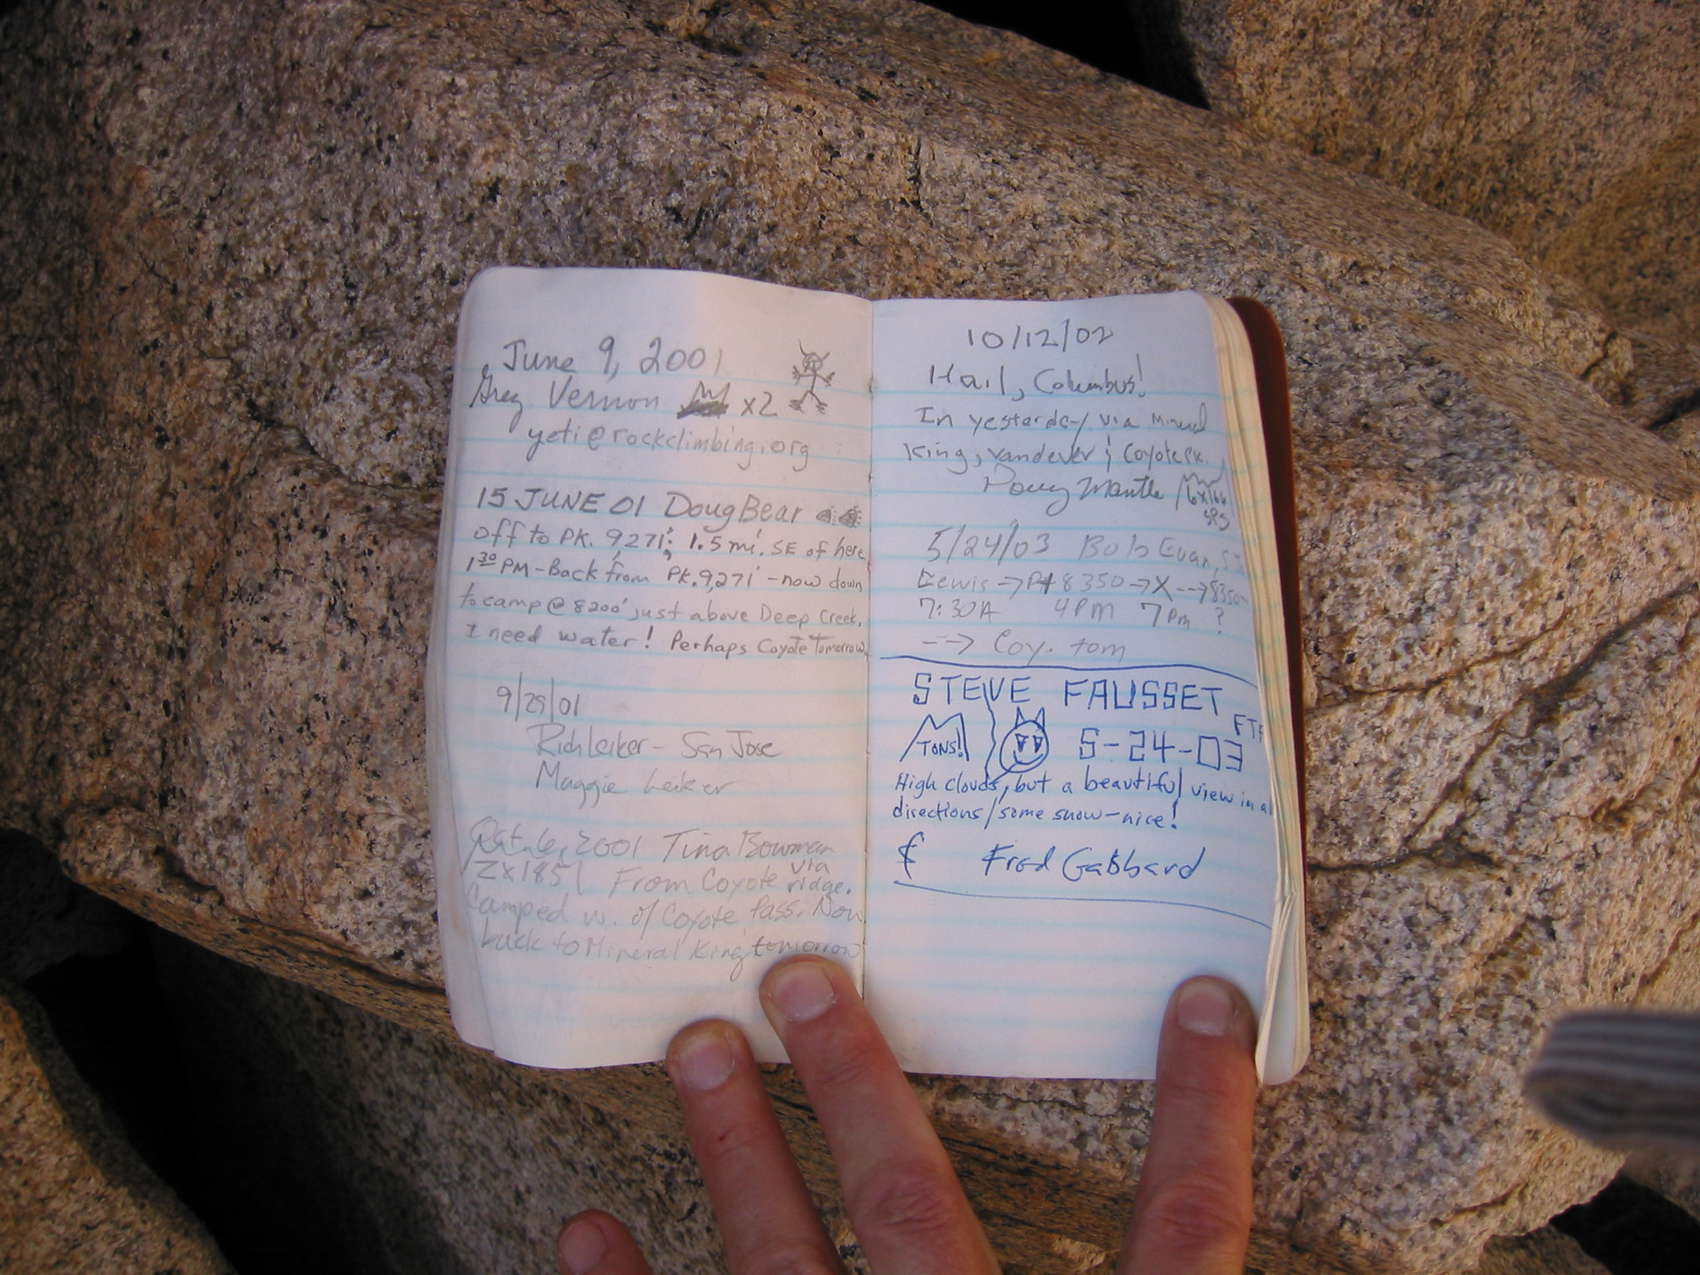 June 9, 2001
Greg Vernon x2
yeti@rockclimbing.org
15 JUNE 01 Doug Bear
off to PK. 9,271'; 1.5 mi. SE of here
1³⁰ PM - Back from PK. 9,271' - now down
to camp @ 8200' just above Deep Creek.
I need water! Perhaps Coyote Tomorrow
9/29/01
Rich Leiker - San Jose
Maggie Leiker
Oct. 6, 2001 Tina Bowman
2x185 From Coyote via ridge.
Camped w. of Coyote Pass. Now
back to Mineral King tomorrow
10/12/02
Hail, Columbus!
In yesterday via Mineral
King, Vandever & Coyote Pk.
Doug Mantle
5/24/03 Bob Evans
Lewis → Pt 8350 → X --→ 8350
7:30A 4PM 7PM ?
--→ Coy. tom
STEVE FAUSSET
TONS! 5-24-03
High clouds, but a beautiful view in
directions/some snow-nice!
Fred Gabbard